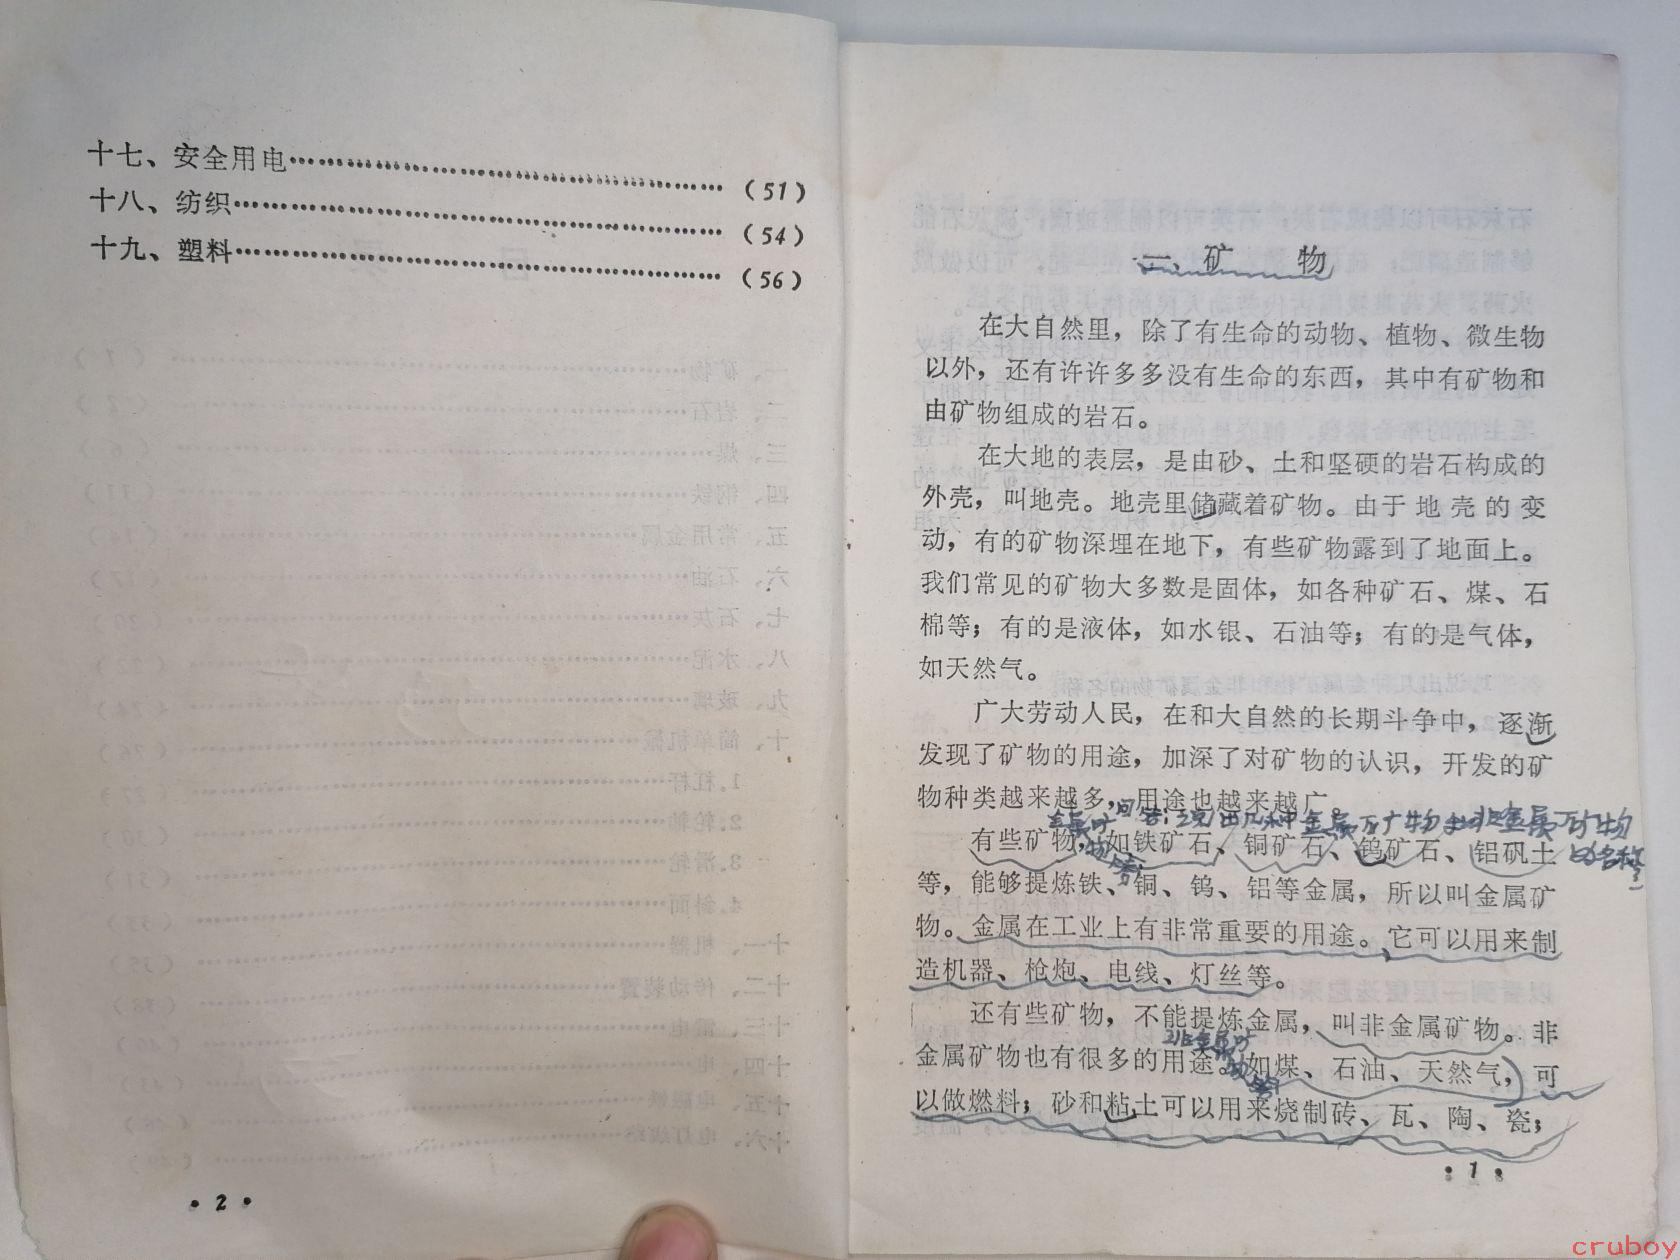 十七、安全用电……………………………………（51）
十八、纺织……………………………………（54）
十九、塑料……………………………………（56）
·2·
一、矿　物
在大自然里，除了有生命的动物、植物、微生物
以外，还有许许多多没有生命的东西，其中有矿物和
由矿物组成的岩石。
在大地的表层，是由砂、土和坚硬的岩石构成的
外壳，叫地壳。地壳里储藏着矿物。由于地壳的变
动，有的矿物深埋在地下，有些矿物露到了地面上。
我们常见的矿物大多数是固体，如各种矿石、煤、石
棉等；有的是液体，如水银、石油等；有的是气体，
如天然气。
广大劳动人民，在和大自然的长期斗争中，逐渐
发现了矿物的用途，加深了对矿物的认识，开发的矿
物种类越来越多，用途也越来越广。
问答：说出几种金属矿物和非金属矿物
的名称
金属矿
物答：
有些矿物，如铁矿石、铜矿石、钨矿石、铝矾土
等，能够提炼铁、铜、钨、铝等金属，所以叫金属矿
物。金属在工业上有非常重要的用途。它可以用来制
造机器、枪炮、电线、灯丝等。
还有些矿物，不能提炼金属，叫非金属矿物。非
非金属矿
物答
金属矿物也有很多的用途。如煤、石油、天然气，可
以做燃料；砂和粘土可以用来烧制砖、瓦、陶、瓷；
·1·
cruboy